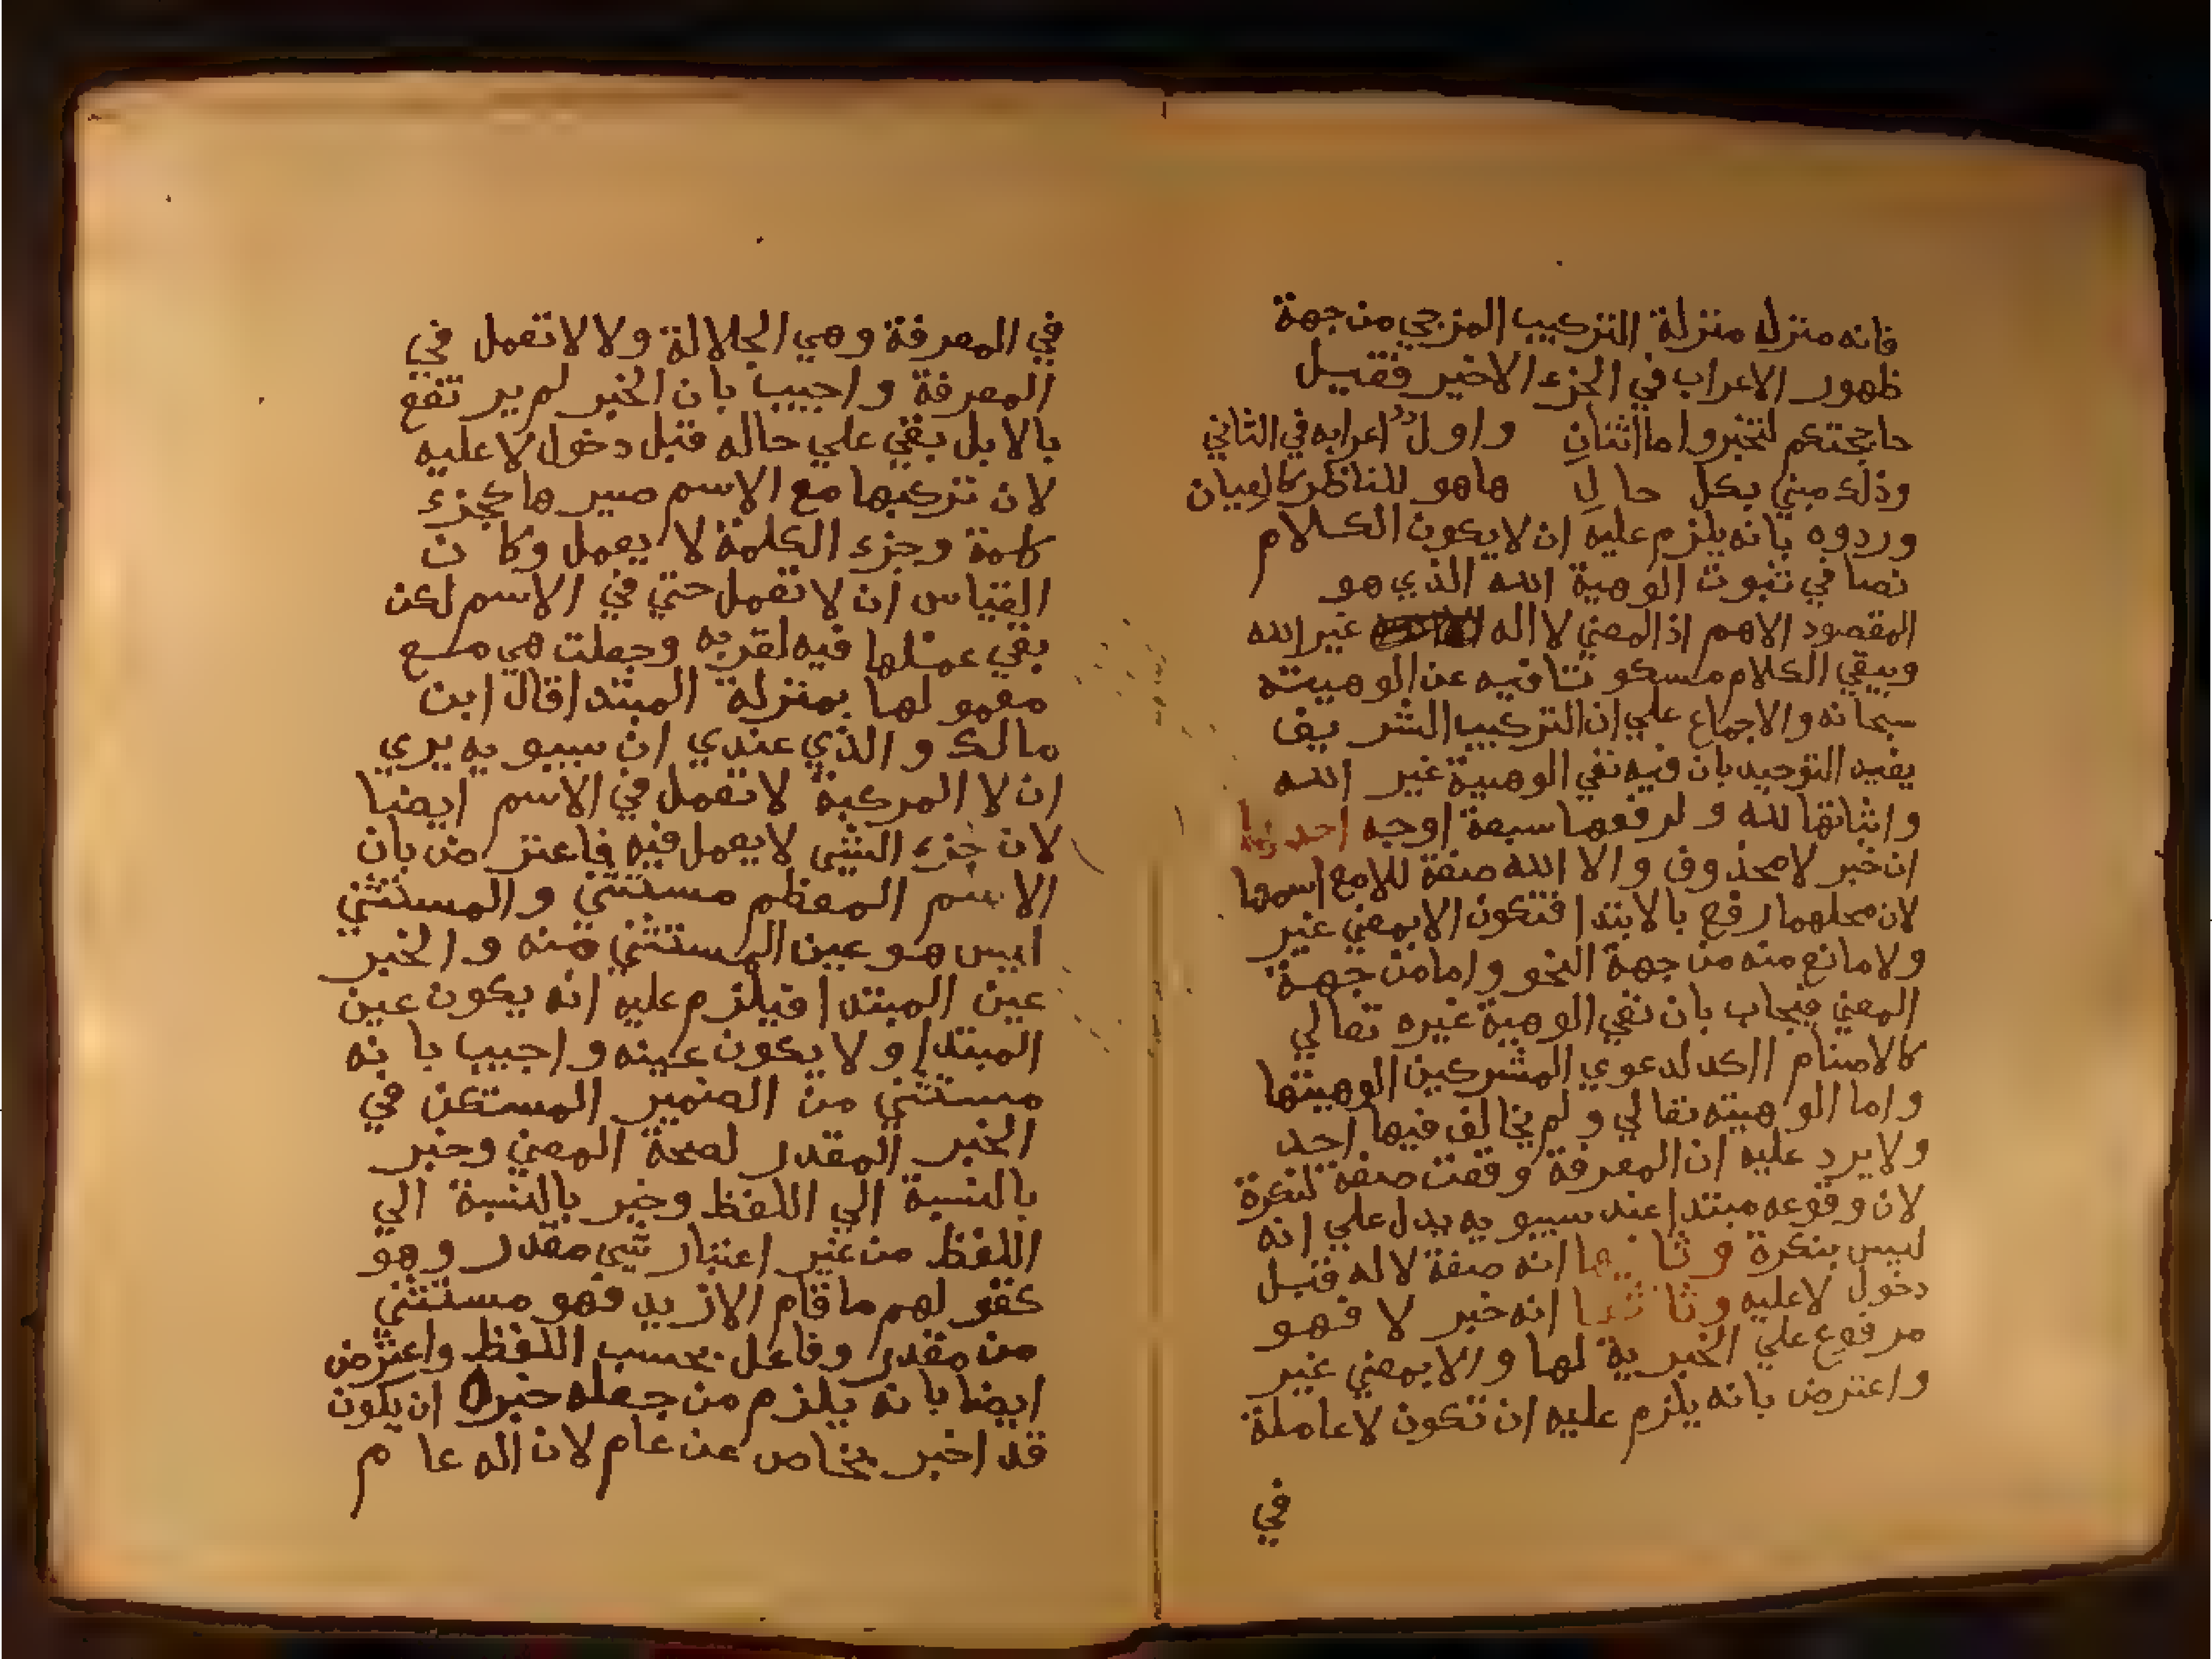 فانه منزل منزلة التركيب المزجي من جهة
ظهور الاعراب في الجزء الاخير فقيل
حاججتكم لتخبروا مااثنان واول اعرابه في الثاني
وذلك مبني بكل حال هاهو للناظر كالعيان
وردوه بانه يلزم عليه ان لا يكون الكلام
نصا في ثبوت الوهية الله الذي هو
المقصود الاهم اذ المعني لا اله غير الله
ويبقي الكلام مسكوتا فيه عن الوهيته
سبحانه والاجماع علي ان التركيب الشريف
يفيد التوحيد بان فيه نفي الوهية غير الله
واثباتها لله ولرفعها سبعة اوجه احدها
ان خبر لا محذوف والا الله صفة للا مع اسمها
لان محلهما رفع بالابتدا فتكون الا بمعني غير
ولا مانع منه من جهة النحو واما من جهة
المعني فيجاب بان نفي الوهية غيره تعالي
كالاصنام ااكد لدعوي المشركين الوهيتها
واما الوهيته تعالي ولم يخالف فيها احد
ولا يرد عليه ان المعرفة وقعت صفة لنكرة
لان وقوعه مبتدا عند سيبويه يدل علي انه
ليس بنكرة وثانيها انه صفة لاله قبل
دخول لا عليه وثالثها انه خبر لا فهو
مرفوع علي الخبرية لها والا بمعني غير
واعترض بانه يلزم عليه ان تكون لا عاملة
في
في المعرفة وهي الجلالة ولا لا تعمل في
المعرفة واجيب بان الخبر لم يرتفع
بالا بل بقي علي حاله قبل دخول لا عليه
لان تركبها مع الاسم صيرها كجزء
كلمة وجزء الكلمة لا يعمل وكان
القياس ان لا تعمل حتي في الاسم لكن
بقي عملها فيه لقربه وجعلت هي مع
معمولها بمنزلة المبتدا قال ابن
مالك والذي عندي ان سيبويه يري
ان لا المركبة لا تعمل في الاسم ايضا
لان جزء الشي لا يعمل فيه فاعترض بان
الاسم المعظم مستثني والمستثني
ليس هو عين المستثني منه والخبر
عين المبتدا فيلزم عليه انه يكون عين
المبتدا ولا يكون عينه واجيب بانه
مستثني من الضمير المستكن في
الخبر المقدر لصحة المعني وخبر
بالنسبة الي اللفظ وخبر بالنسبة الي
اللفظ من غير اعتبار شي مقدر وهو
كقولهم ما قام الا زيد فهو مستثني
من مقدر وفاعل بحسب اللفظ واعترض
ايضا بانه يلزم من جعله خبرا ان يكون
قد اخبر بخاص عن عام لان اله عام